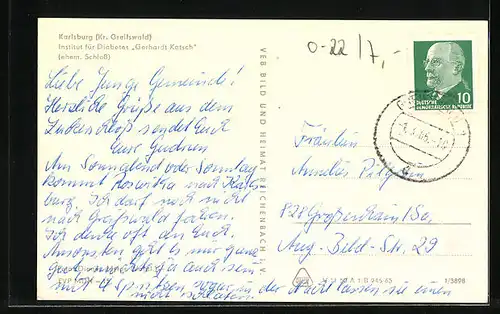 Karlsburg (Kr. Greifswald)
Institut für Diabetes „Gerhardt Katsch"
(ehem. Schloß)
0-22/7,-
Liebe Junge Gemeinde!
Herzliche Grüße aus dem
Zuckerschloß sendet Euch
Eure Gudrun
Am Sonnabend oder Sonntag
kommt Roswitha nach Karls
burg. Ich darf noch nicht
nach Greifswald fahren.
Ich denke oft an Euch.
Ansonsten geht es mir ganz
gut,
mit
Spritzen
in der Nacht lassen sie einen
nicht
VEB BILD UND HEIMAT REICHENBACH i. V.
10
DEUTSCHE
DEMOKRATISCHE REPUBLIK
Fräulein
Annelies
828 Großenhain/Sa.
Aug.-Bebel-Str. 29
1/3898